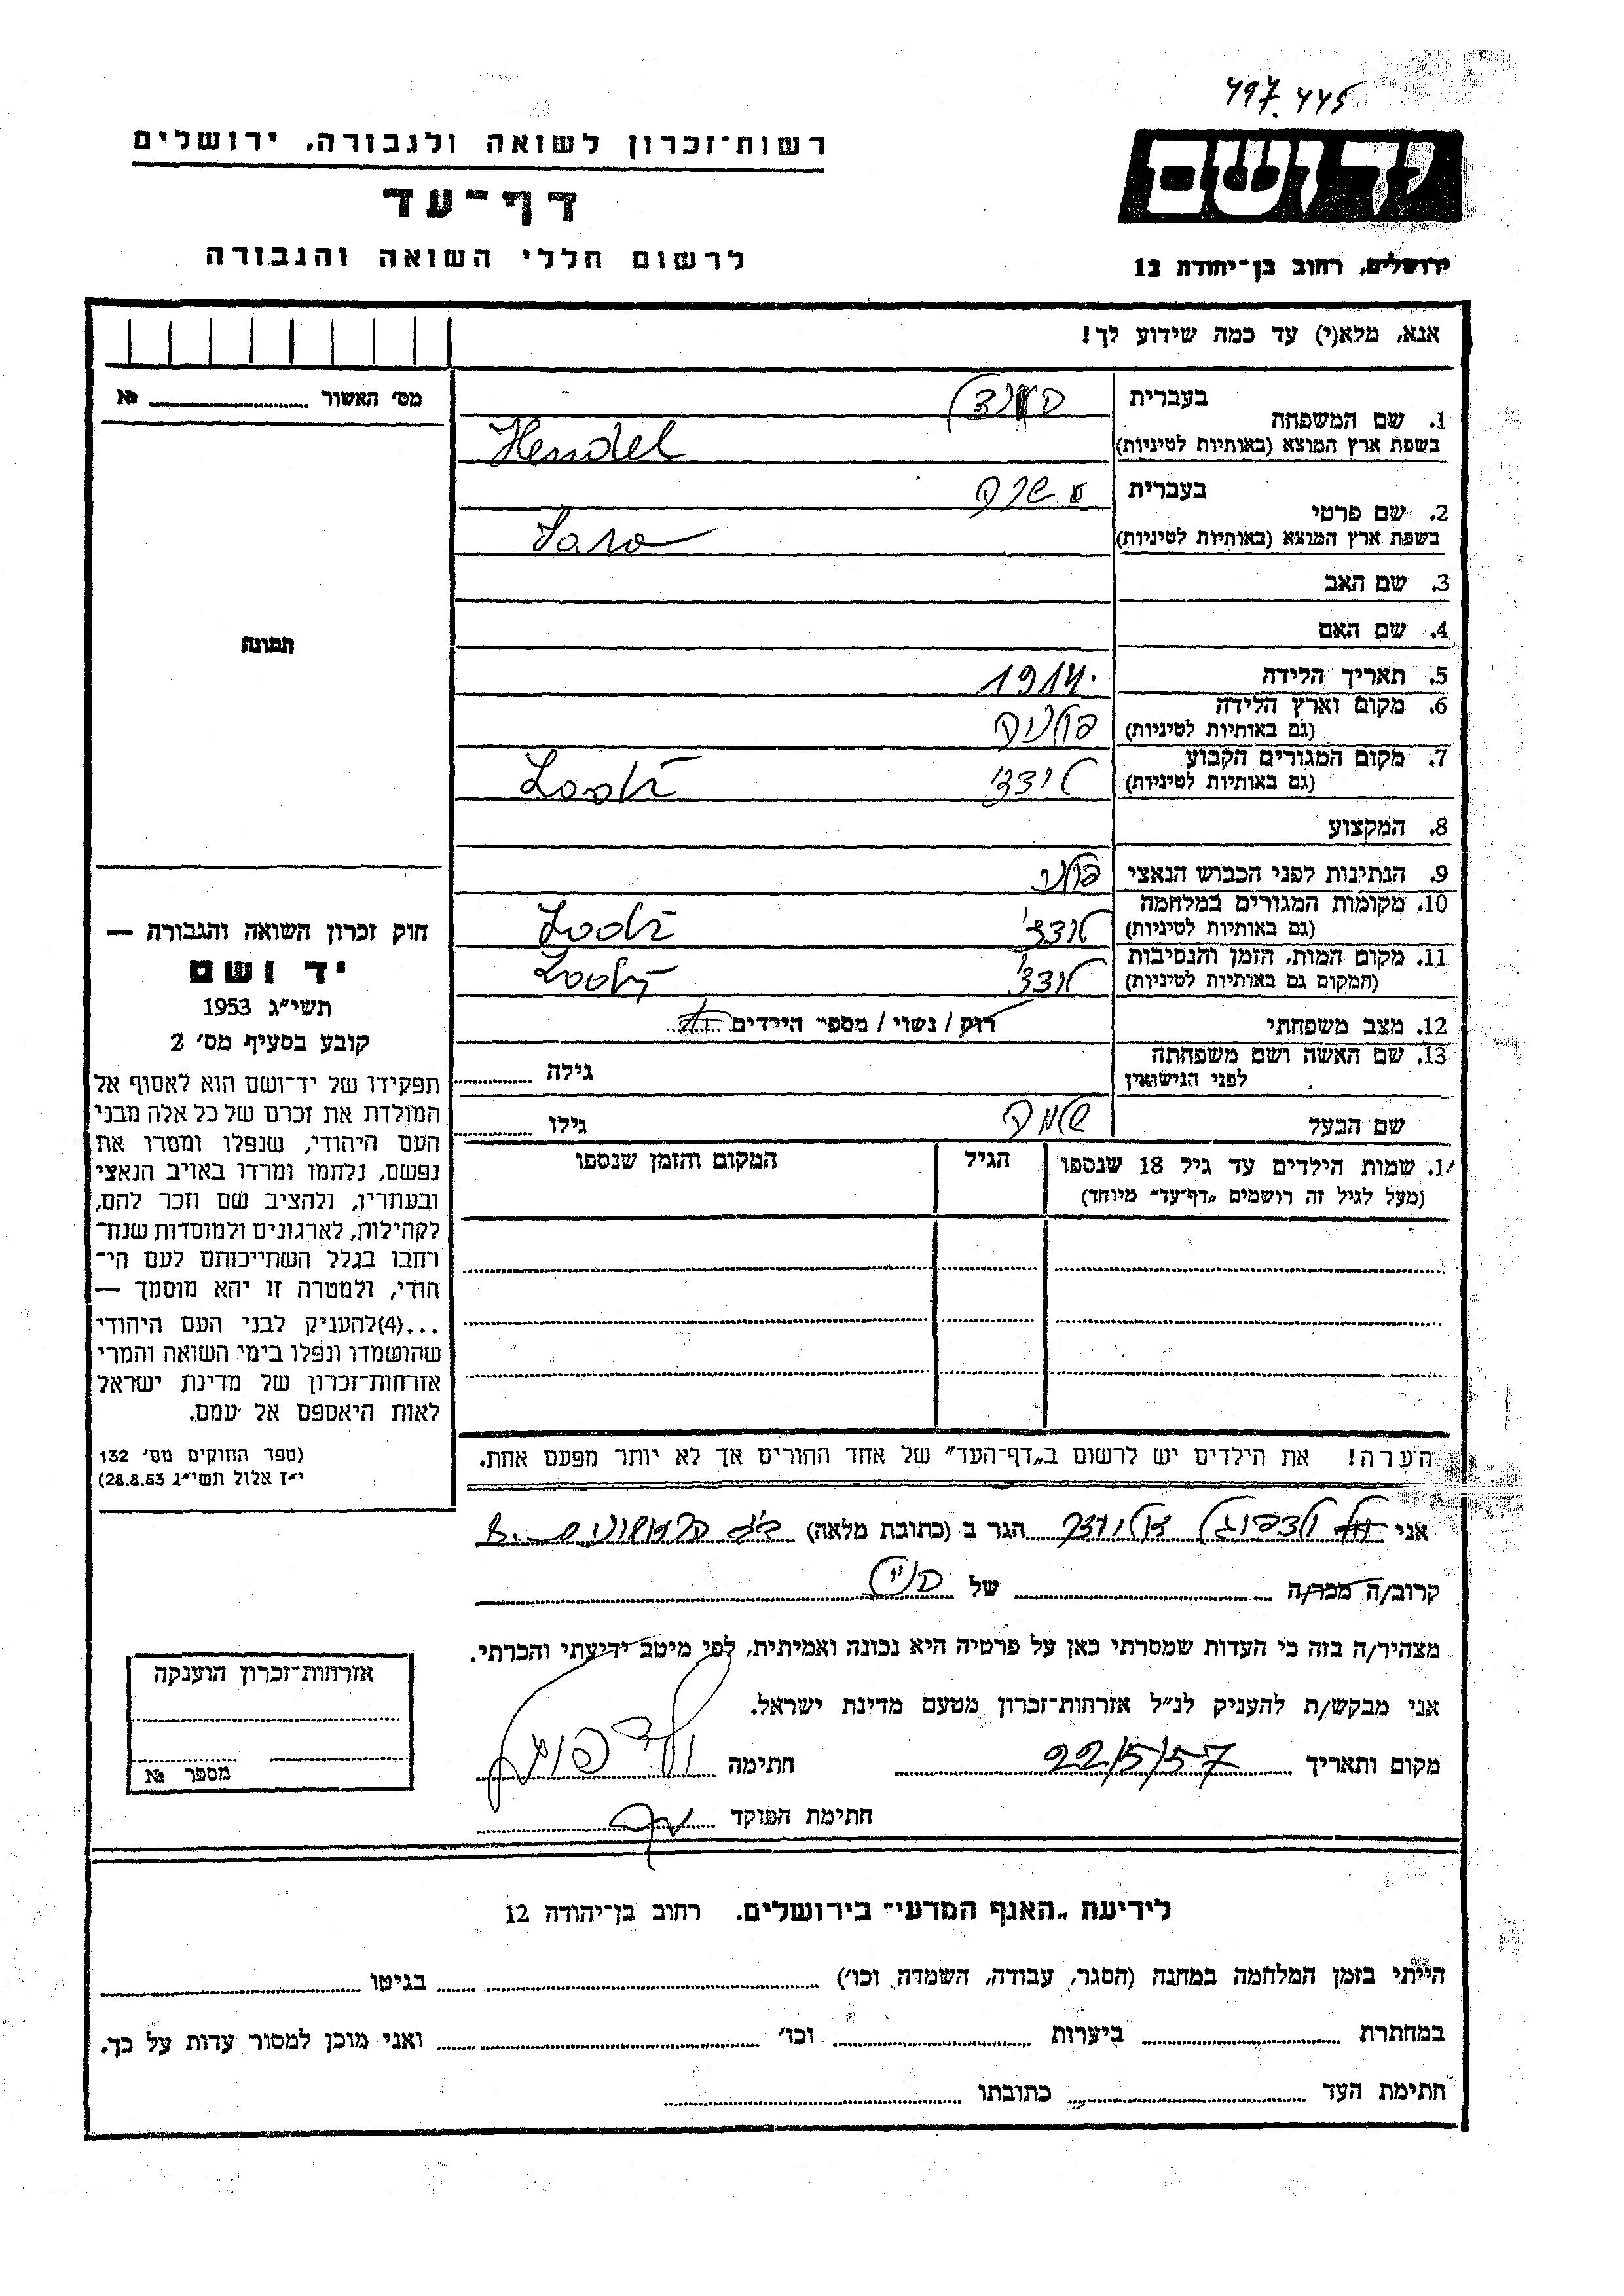 497.445
רשות־זכרון לשואה ולגבורה, ירושלים
דף־עד
לרשום חללי השואה והגבורה
יד ושם
ירושלים, רחוב בן־יהודה 12
אנא, מלא(י) עד כמה שידוע לך!
מס׳ האשור № 
1. שם המשפחה
בעברית
בשפת ארץ המוצא (באותיות לטיניות) Hendel
2. שם פרטי
בעברית שרה
בשפת ארץ המוצא (באותיות לטיניות) Sara
3. שם האב
4. שם האם
5. תאריך הלידה 1914
6. מקום וארץ הלידה פולניה
(גם באותיות לטיניות)
7. מקום המגורים הקבוע לודז׳ Lodź
(גם באותיות לטיניות)
8. המקצוע
9. הנתינות לפני הכבוש הנאצי פולני
10. מקומות המגורים במלחמה לודז׳ Lodź
(גם באותיות לטיניות)
11. מקום המות, הזמן והנסיבות לודז׳ Lodź
(המקום גם באותיות לטיניות)
12. מצב משפחתי רוק / נשוי / מספר הילדים
13. שם האשה ושם משפחתה
לפני הנישואין
גילה
שם הבעל שלמה גילו
1. שמות הילדים עד גיל 18 שנספו
(מעל לגיל זה רושמים „דף־עד״ מיוחד)
הגיל
המקום והזמן שנספו
הערה! את הילדים יש לרשום ב„דף־העד״ של אחד ההורים אך לא יותר מפעם אחת.
תמונה
חוק זכרון השואה והגבורה —
יד ושם
תשי״ג 1953
קובע בסעיף מס׳ 2
תפקידו של יד־ושם הוא לאסוף אל
המולדת את זכרם של כל אלה מבני
העם היהודי, שנפלו ומסרו את
נפשם, נלחמו ומרדו באויב הנאצי
ובעוזריו, ולהציב שם וזכר להם,
לקהילות, לארגונים ולמוסדות שנח־
רבו בגלל השתייכותם לעם הי־
הודי, ולמטרה זו יהא מוסמך —
...(4)להעניק לבני העם היהודי
שהושמדו ונפלו בימי השואה והמרי
אזרחות־זכרון של מדינת ישראל
לאות היאספם אל עמם.
(ספר החוקים מס׳ 132
י״ז אלול תשי״ג 28.8.53)
אני הגר ב (כתובת מלאה)
קרוב/ה מכר/ה של
מצהיר/ה בזה כי העדות שמסרתי כאן על פרטיה היא נכונה ואמיתית, לפי מיטב ידיעתי והכרתי.
אני מבקש/ת להעניק לנ״ל אזרחות־זכרון מטעם מדינת ישראל.
מקום ותאריך 22/5/57 חתימה
חתימת הפוקד
אזרחות־זכרון הוענקה
מספר №
לידיעת „האגף המדעי״ בירושלים, רחוב בן־יהודה 12
הייתי בזמן המלחמה במחנה (הסגר, עבודה, השמדה וכו׳) בגיטו
במחתרת ביערות וכו׳ ואני מוכן למסור עדות על כך.
חתימת העד כתובתו